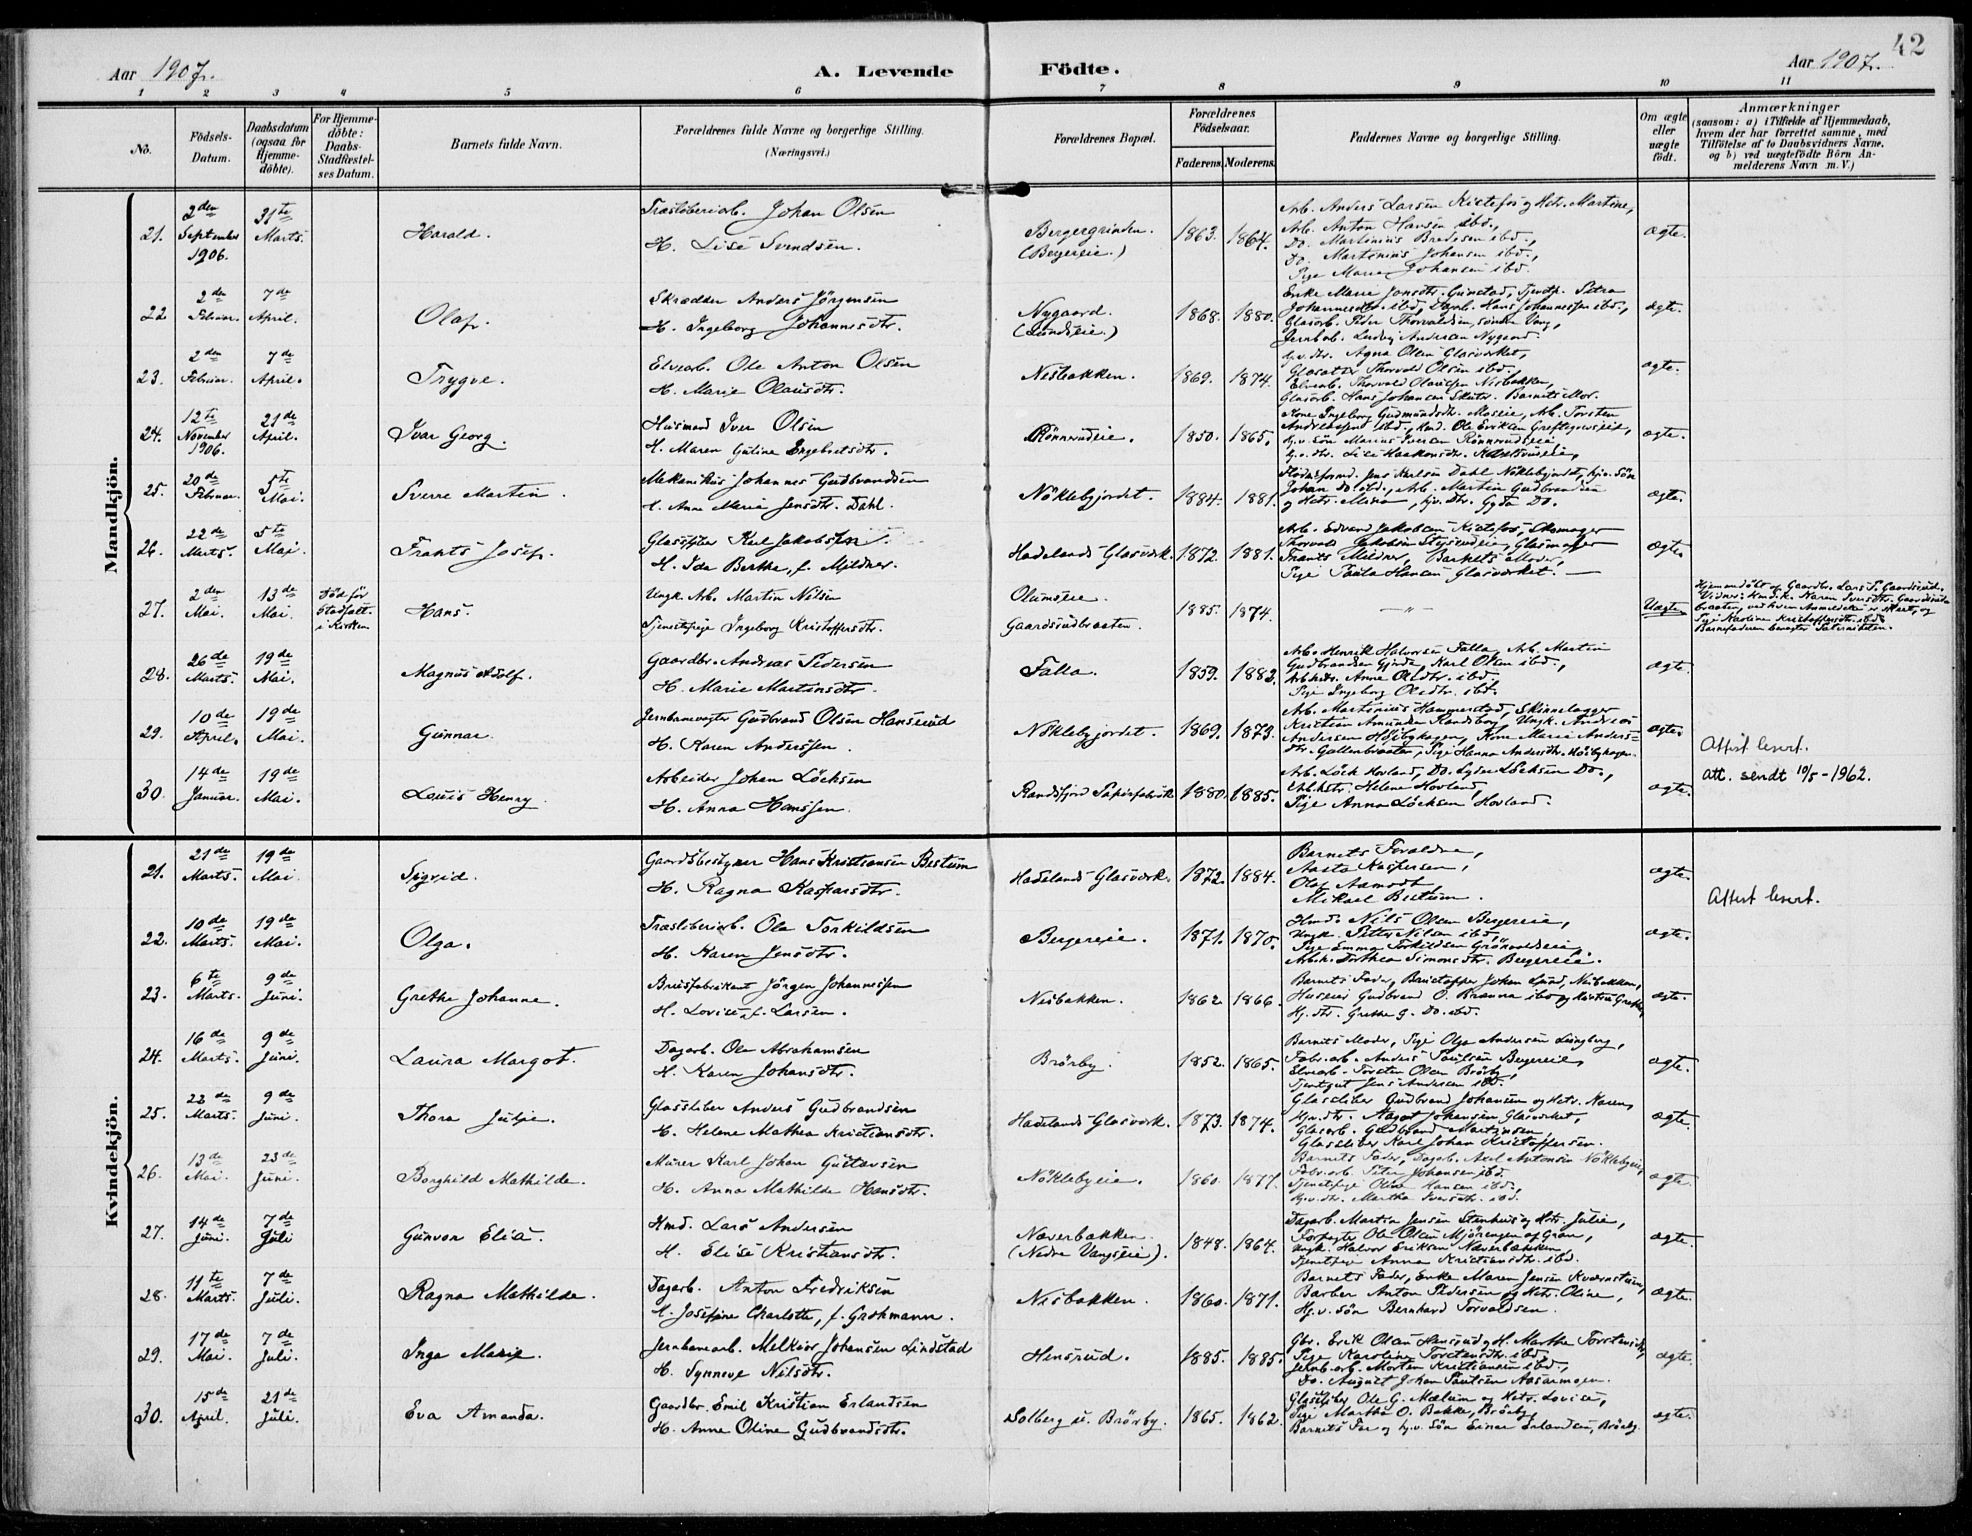 42
Aar 1907. A. Levende Födte. Aar 1907.
1 2 3 4 5 6 7 8 9 10 11
No. Födsels-Datum. Daabsdatum (ogsaa for Hjemme-döbte). For Hjemme-döbte: Daabs-Stadfæstel-ses Datum. Barnets fulde Navn. Forældrenes fulde Navne og borgerlige Stilling. (Næringsvei.) Forældrenes Bopæl. Forældrenes Födselsaar. Faderens. Moderens. Faddernes Navne og borgerlige Stilling. Om ægte eller uægte födt. Anmærkninger (saasom: a) i Tilfælde af Hjemmedaab, hvem der har forrettet samme, med Tilföielse af to Daabsvidners Navne, og b) ved uægtefödte Börn An-melderens Navn m. V.)
Mandkjön.
21. 2den September 1906. 31te Marts. Harald. Træsliberiarb. Johan Olsen
H. Lise Svendsen. Bergergrinden. (Bergereie.) 1863. 1864. Arb. Anders Larsen Kistefos og Hstr. Martine,
Arb. Anton Hansen ibd.,
Do. Martinius Bredesen ibd.,
Do. Martinius Johansen ibd.,
Pige Marie Johansen ibd. ægte.
22 2den Februar. 7de April. Olaf. Skrædder Anders Jörgensen
H. Ingeborg Johannesdtr. Nygaard. (Lundseie.) 1868. 1880. Enke Marie Jonsdtr. Gunstad, Tjenstp. Petra
Johannesdtr. ibd., Dagarb. Hans Johannessen ibd.,
Glasarb. Peder Thorvaldsen, söndre Vang,
Jernbarb. Ludvig Andersen Nygaard. ægte.
23. 2den Februar. 7de April. Trygve. Elvearb. Ole Anton Olsen
H. Marie Olausdtr. Nesbakken. 1869. 1874. hjv. dtr. Agna Olsen Glasværket,
Thorvald Olsen ibd.,
Elvearb. Thorvald Olaussen Nesbakken,
Glasarb. Hans Johansen Barnets Mor. ægte.
24. 12te November 1906. 21de April. Ivar Georg. Husmand Iver Olsen
H. Maren Guline Engebretsdtr. Rönnerudeie. 1850. 1865. Kone Ingeborg Gudmundsdtr. Moseie, Arb. Torsten
ibd., Hmd. Ole Eriksen
hjv. sön Marius Iversen Rönnerudseie,
hjv. dtr. Lise Haakonsdtr. ægte.
25. 20de Februar. 5te Mai. Sverre Martin. Mekanikus Johannes Gudbrandsen
H. Anne Marie Jensdtr. Dahl. Nöklebyjordet. 1884. 1881. Jens Karlsen Dahl Nöklebyjordet, hjv. Sön
Johan Do ibd., Arb. Martin Gudbrandsen
og Hstr. Marie, hjv. Dtr. Gyda Do. ægte.
26. 22de Marts. 5te Mai. Frants Josef. Glassliber Karl Jakobsen.
H. Ida Bertha, f. Mildner. Hadelands Glasværk. 1872. 1881. Arb. Edvard Jakobsen Kistefos, Skomager
Thorvald Jakobsen, Glasmager
Frants Mildner, Barnets Moder,
Pige Paula Hansen Glasværket. ægte.
27. 2den Mai. 13de Mai. Död för Stadfæst. i Kirken Hans. Ungk. Arb. Martin Nilsen
Tjenestepige Ingeborg Kristoffersdtr. Olumseie. Gaardsrudbraaten. 1885. 1874. — " — Uægte Hjemmedöbt af Gaardbr. Lars P. Gaardsrud.
Vidner: Karen Iversdtr. Gaardsrud-
braaten, ved hvem Anmeldelsen er skeet, og
Pige Karoline Kristoffersdtr. ibd.
Barnefaderen benegter Paterniteten.
28. 26de Marts. 19de Mai. Magnus Adolf. Gaardbr. Andreas Pedersen
H. Marie Martinsdtr. Falla. 1859. 1882. Arb. Henrik Halvorsen Falla, Arb. Martin
Gudbrandsen Gjerde, Karl Olsen ibd.,
Arbhstr. Anne Olsdtr. ibd.,
Pige Ingeborg Olsdtr. ibd. ægte
29. 10de April. 19de Mai. Gunnar. Jernbanevogter Gudbrand Olsen Hansrud
H. Karen Anderssen. Nöklebyjordet. 1869. 1873. Arb. Martinius Hammerstad, Skinnelægger
Kristian Amundsen Randsborg, Ungk. Andreas
Andersen Höibyhagen, Kone Marie Anders-
dtr. Gullenbraaten, Pige Hanna Andersdtr. Höibyhagen. ægte. Attest levert.
30. 14de Januar. 19de Mai. Louis Henry. Arbeider Johan Löcksen
H. Anna Hanssen. Randsfjord Papirfabrik 1880. 1885. Arb. Löck Hovland, Do. Syder Löcksen Do.,
Arbhstr. Helene Hovland,
Pige Anna Löcksen Hovland. ægte. att. sendt 10/5-1962.
Kvindekjön.
21. 21de Marts. 19de Mai. Sigrid. Gaardsbestyrer Hans Kristiansen Bestum
H. Ragna Kaspersdtr. Hadelands Glasværk. 1872. 1884. Barnets Forældre,
Aasta Kaspersen,
Olaf Aamodt,
Mikael Bestum. ægte. Attest levert.
22. 10de Marts. 19de Mai. Olga. Træsliberiarb. Ole Torkildsen
H. Karen Jensdtr. Bergereie. 1871. 1870. Hmd. Nils Olsen Bergereie,
Ungk. Peter Nilsen ibd.,
Pige Emma Torkildsen Grönvoldseie,
Arbk. Dorthea Simonsdtr. Bergereie. ægte.
23. 6te Marts. 9de Juni. Grethe Johanne. Brusfabrikant Jörgen Johannessen
H. Lovise, f. Larsen. Nesbakken. 1862 1866. Barnets Fader, Brustapper Johan Nesbakken,
Huseier Gudbrand O. Brænna ibd og Hustru Grethe,
Hj. dtr. Grethe G. Do. ibd. ægte.
24. 16de Marts. 9de Juni. Laura Margot. Dagarb. Ole Abrahamsen
H. Karen Johansdtr. Brörby. 1852. 1865. Barnets Moder, Pige Olga Andersen Ljungberg,
Fabr. arb. Anders Paulsen Bergereie,
Elvearb. Torsten Olsen Brörby,
Tjentgut Jens Andersen ibd. ægte.
25. 22de Marts. 9de Juni. Thora Julie. Glassliber Anders Gudbrandsen
H. Helene Mathea Kristiansdtr. Hadelands Glasværk. 1873. 1874. Glassliber Gudbrand Johansen og Hstr. Karen,
Hjv. dtr. Aagot Johansen Glasværket,
Glasarb. Gudbrand Martinsen,
Glassliber Karl Johan Kristoffersen. ægte.
26. 13de Mai. 23de Juni. Borghild Mathilde. Murer Karl Johan Gustavsen
H. Anna Mathilde Hansdtr. Nöklebyeie. 1860. 1877. Barnets Fader, Dagarb. Axel Antonsen Nöklebyeie,
Fabr. arb. Peter Johansen ibd.
Tjenestepige Oline Hansen ibd.
hjv. dtr. Martha Iversdtr. ibd. ægte.
27. 14de Juni. 7de Juli Gunvor Elisa. Hmd. Lars Andersen
H. Elise Kristiansdtr. Næverbakken. (Nedre Vangseie). 1848. 1864. Dagarb. Martin Jensen Stenhus og Hstr. Julie,
Forpagter Ole Olsen Mjörengen af Gran,
Ungk. Halvor Eriksen Næverbakken,
Tjenestepige Anna Kristiansdtr. ibd. ægte.
28. 11te Marts. 7de Juli. Ragna Mathilde. Dagarb. Anton Fredriksen
H. Josefine Charlotte, f. Grohmann. Nesbakken. 1860. 1871. Barnets Fader, Enke Maren Jensen Kværnstuen,
Barber Anton Pedersen og Hstr. Oline,
Hj. v. sön Bernhard Torvaldsen. ægte.
29. 17de Mai. 7de Juli. Inga Marie. Jernbanearb. Melkior Johansen Lindstad
H. Synneve Nilsdtr. Hensrud. 1885. 1885. Gbr. Erik Olsen Hensrud og H. Marthe Torstensdtr,
Pige Karoline Torstensdtr. ibd.
Jernb. arb. Morten Kristiansen ibd.,
Do. August Johan Paulsen Aasarmoen. ægte.
30. 15de April. 21de Juli. Eva Amanda. Gaardbr. Emil Kristian Erlandsen
H. Anne Oline Gudbrandsdtr. Solberg u. Brörby. 1865. 1862. Glassliber Ole G. Mælum og Hstr. Lovise,
Pige Martha O. Bakke, Brörby,
Barnets Far og hjv. Sön Einar Erlandsen, Brörby. ægte.